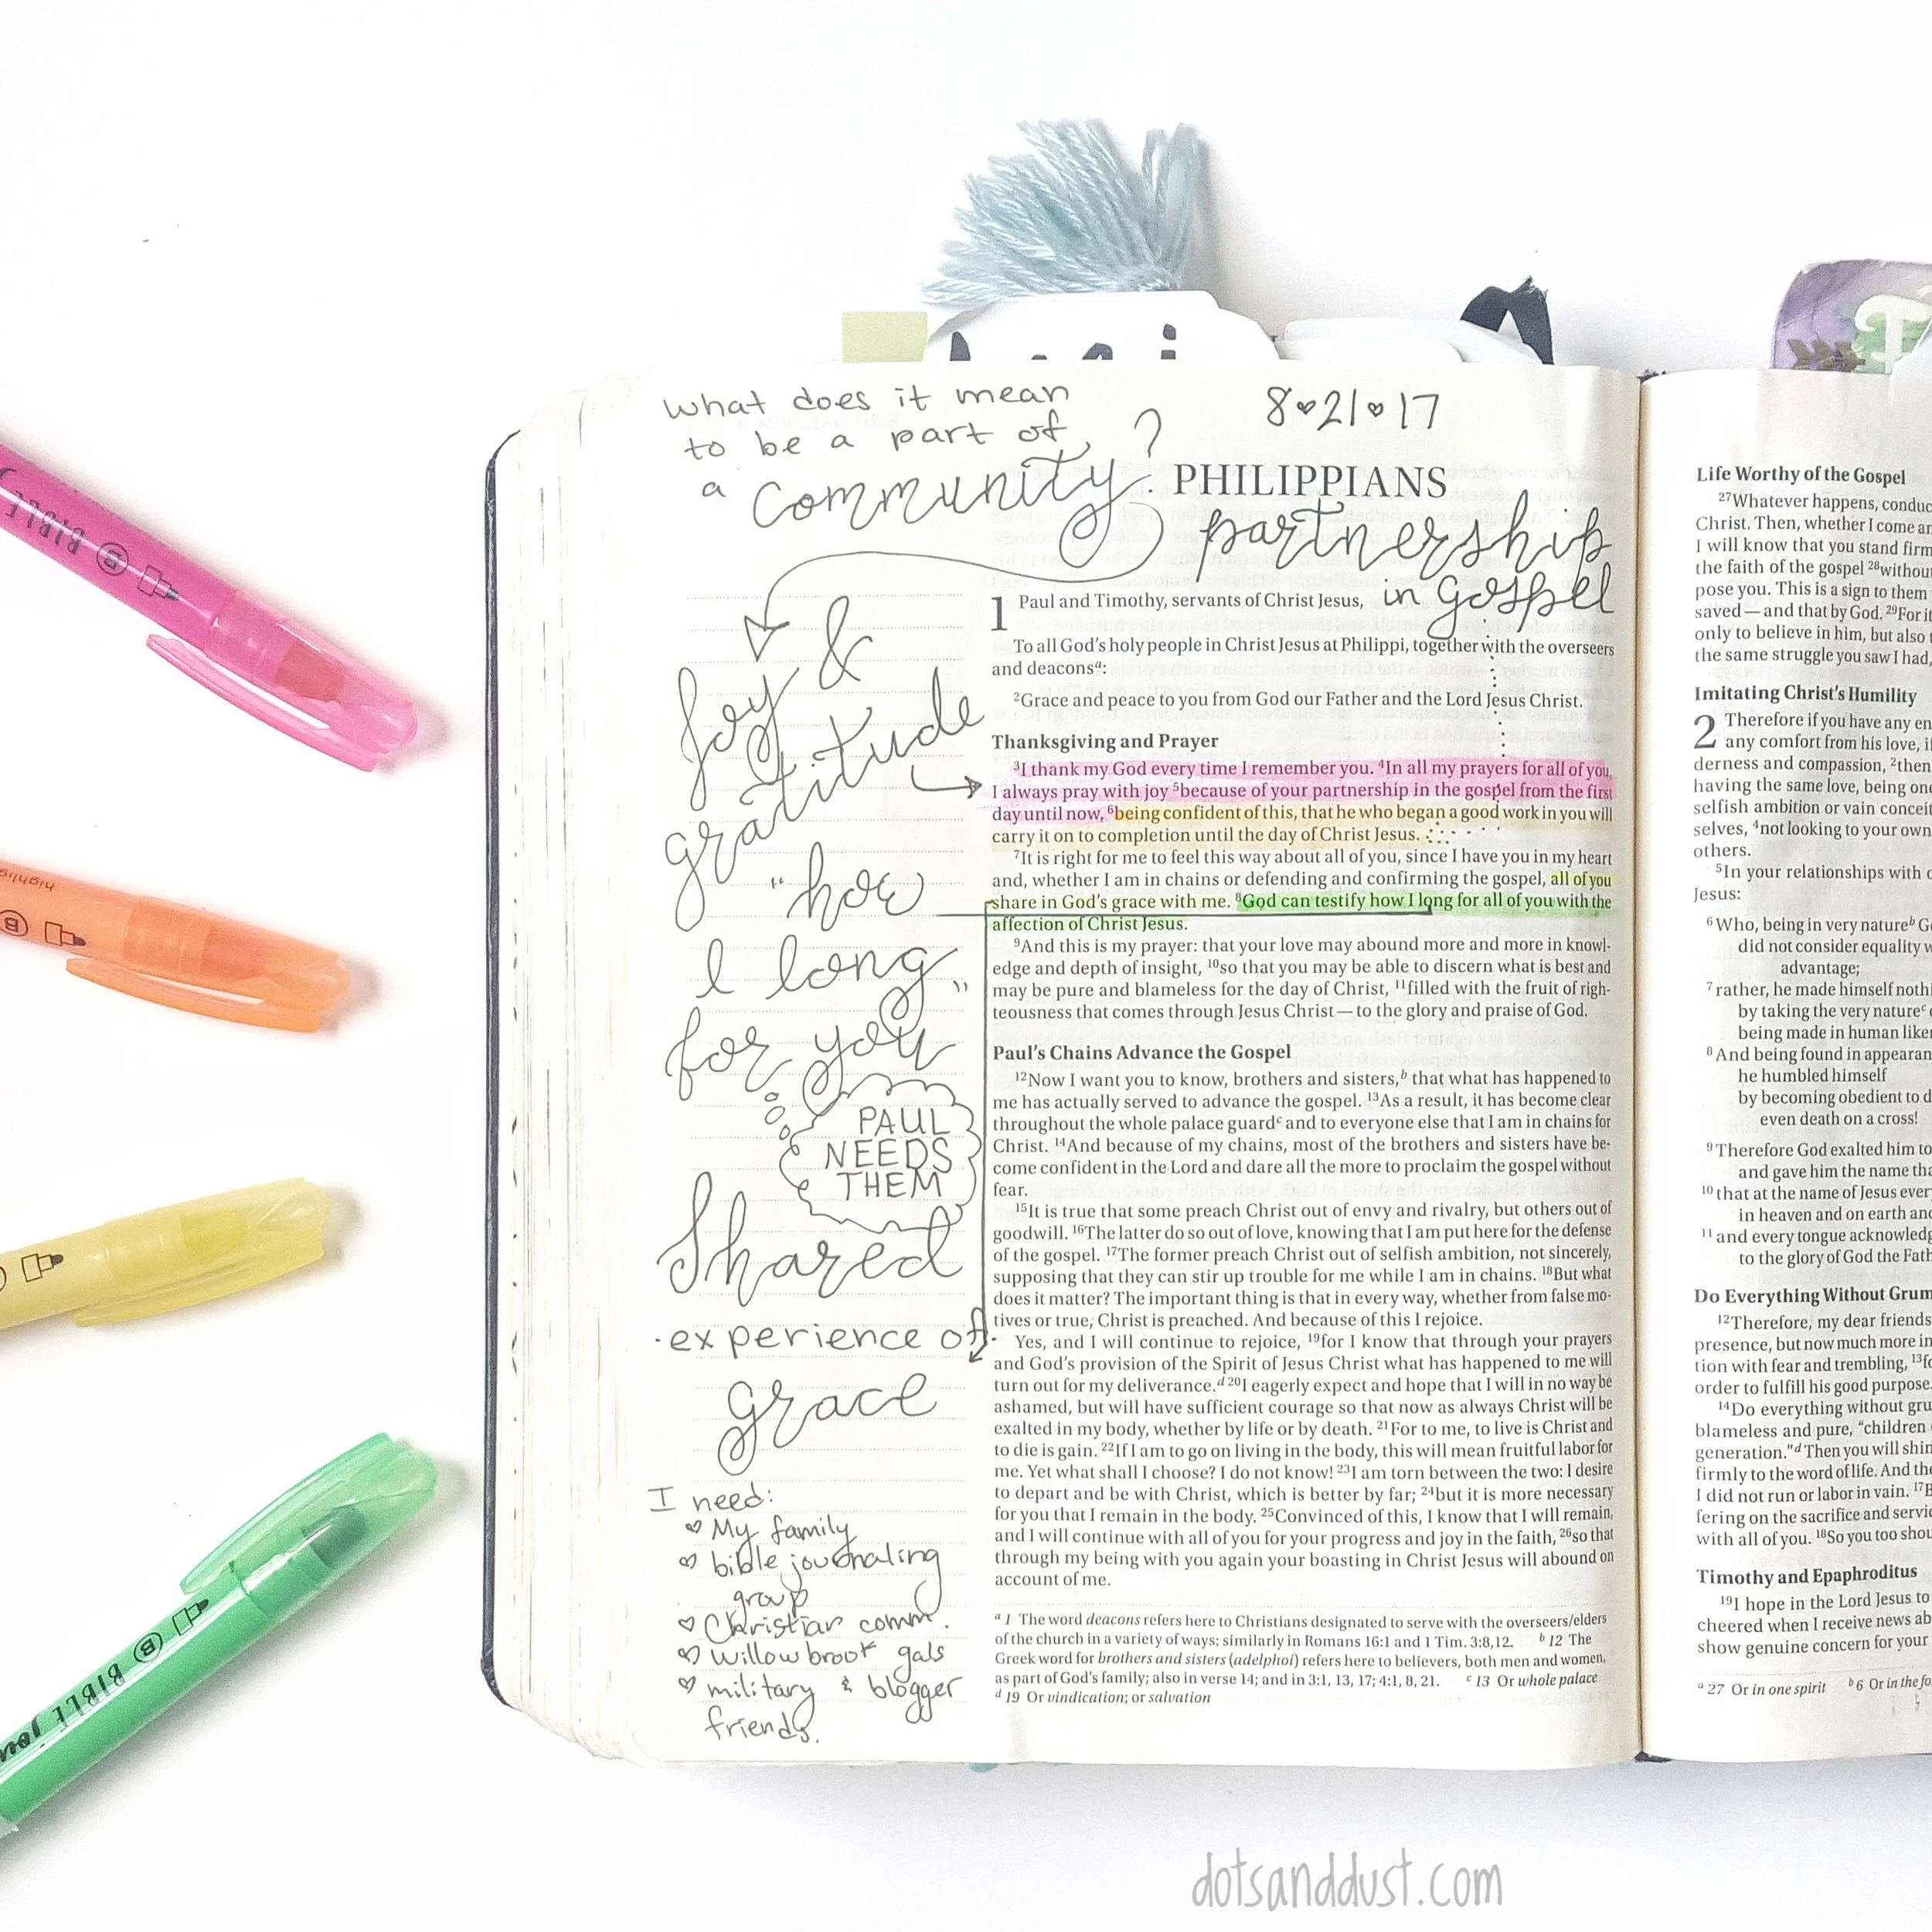 what does it mean
to be a part of
a community?
8 21 17
PHILIPPIANS
partnership
in gospel
joy &
gratitude
"how
I long"
for you
PAUL
NEEDS
THEM
Shared
experience of
grace
I need:
My family
bible journaling
group
Christian comm.
Willowbrook gals
military & blogger
friends.
1 Paul and Timothy, servants of Christ Jesus,
To all God's holy people in Christ Jesus at Philippi, together with the overseers
and deacons a:
2 Grace and peace to you from God our Father and the Lord Jesus Christ.
Thanksgiving and Prayer
3 I thank my God every time I remember you. 4 In all my prayers for all of you,
I always pray with joy 5 because of your partnership in the gospel from the first
day until now, 6 being confident of this, that he who began a good work in you will
carry it on to completion until the day of Christ Jesus.
7 It is right for me to feel this way about all of you, since I have you in my heart
and, whether I am in chains or defending and confirming the gospel, all of you
share in God's grace with me. 8 God can testify how I long for all of you with the
affection of Christ Jesus.
9 And this is my prayer: that your love may abound more and more in knowl-
edge and depth of insight, 10 so that you may be able to discern what is best and
may be pure and blameless for the day of Christ, 11 filled with the fruit of righ-
teousness that comes through Jesus Christ—to the glory and praise of God.
Paul's Chains Advance the Gospel
12 Now I want you to know, brothers and sisters, b that what has happened to
me has actually served to advance the gospel. 13 As a result, it has become clear
throughout the whole palace guard c and to everyone else that I am in chains for
Christ. 14 And because of my chains, most of the brothers and sisters have be-
come confident in the Lord and dare all the more to proclaim the gospel without
fear.
15 It is true that some preach Christ out of envy and rivalry, but others out of
goodwill. 16 The latter do so out of love, knowing that I am put here for the defense
of the gospel. 17 The former preach Christ out of selfish ambition, not sincerely,
supposing that they can stir up trouble for me while I am in chains. 18 But what
does it matter? The important thing is that in every way, whether from false mo-
tives or true, Christ is preached. And because of this I rejoice.
Yes, and I will continue to rejoice, 19 for I know that through your prayers
and God's provision of the Spirit of Jesus Christ what has happened to me will
turn out for my deliverance. d 20 I eagerly expect and hope that I will in no way be
ashamed, but will have sufficient courage so that now as always Christ will be
exalted in my body, whether by life or by death. 21 For to me, to live is Christ and
to die is gain. 22 If I am to go on living in the body, this will mean fruitful labor for
me. Yet what shall I choose? I do not know! 23 I am torn between the two: I desire
to depart and be with Christ, which is better by far; 24 but it is more necessary
for you that I remain in the body. 25 Convinced of this, I know that I will remain,
and I will continue with all of you for your progress and joy in the faith, 26 so that
through my being with you again your boasting in Christ Jesus will abound on
account of me.
a 1 The word deacons refers here to Christians designated to serve with the overseers/elders
of the church in a variety of ways; similarly in Romans 16:1 and 1 Tim. 3:8,12. b 12 The
Greek word for brothers and sisters (adelphoi) refers here to believers, both men and women,
as part of God's family; also in verse 14; and in 3:1, 13, 17; 4:1, 8, 21. c 13 Or whole palace
d 19 Or vindication; or salvation
Life Worthy of the Gospel
27 Whatever happens, conduc
Christ. Then, whether I come an
I will know that you stand firm
the faith of the gospel 28 without
pose you. This is a sign to them
saved—and that by God. 29 For it
only to believe in him, but also
the same struggle you saw I had,
Imitating Christ's Humility
2 Therefore if you have any en
any comfort from his love, if
derness and compassion, 2 then
having the same love, being one
selfish ambition or vain conceit
selves, 4 not looking to your own
others.
5 In your relationships with
Jesus:
6 Who, being in very nature b G
did not consider equality w
advantage;
7 rather, he made himself nothi
by taking the very nature c
being made in human liken
8 And being found in appearan
he humbled himself
by becoming obedient to d
even death on a cross!
9 Therefore God exalted him to
and gave him the name tha
10 that at the name of Jesus ever
in heaven and on earth and
11 and every tongue acknowledg
to the glory of God the Fath
Do Everything Without Grum
12 Therefore, my dear friends
presence, but now much more in
tion with fear and trembling, 13 fo
order to fulfill his good purpose.
14 Do everything without gru
blameless and pure, "children
generation." d Then you will shin
firmly to the word of life. And the
I did not run or labor in vain. 17 B
fering on the sacrifice and servic
with all of you. 18 So you too shou
Timothy and Epaphroditus
19 I hope in the Lord Jesus to
cheered when I receive news ab
show genuine concern for your
a 27 Or in one spirit b 6 Or in the fo
BIBLE
B
highlig
B
B BIBLE jour
dotsanddust.com